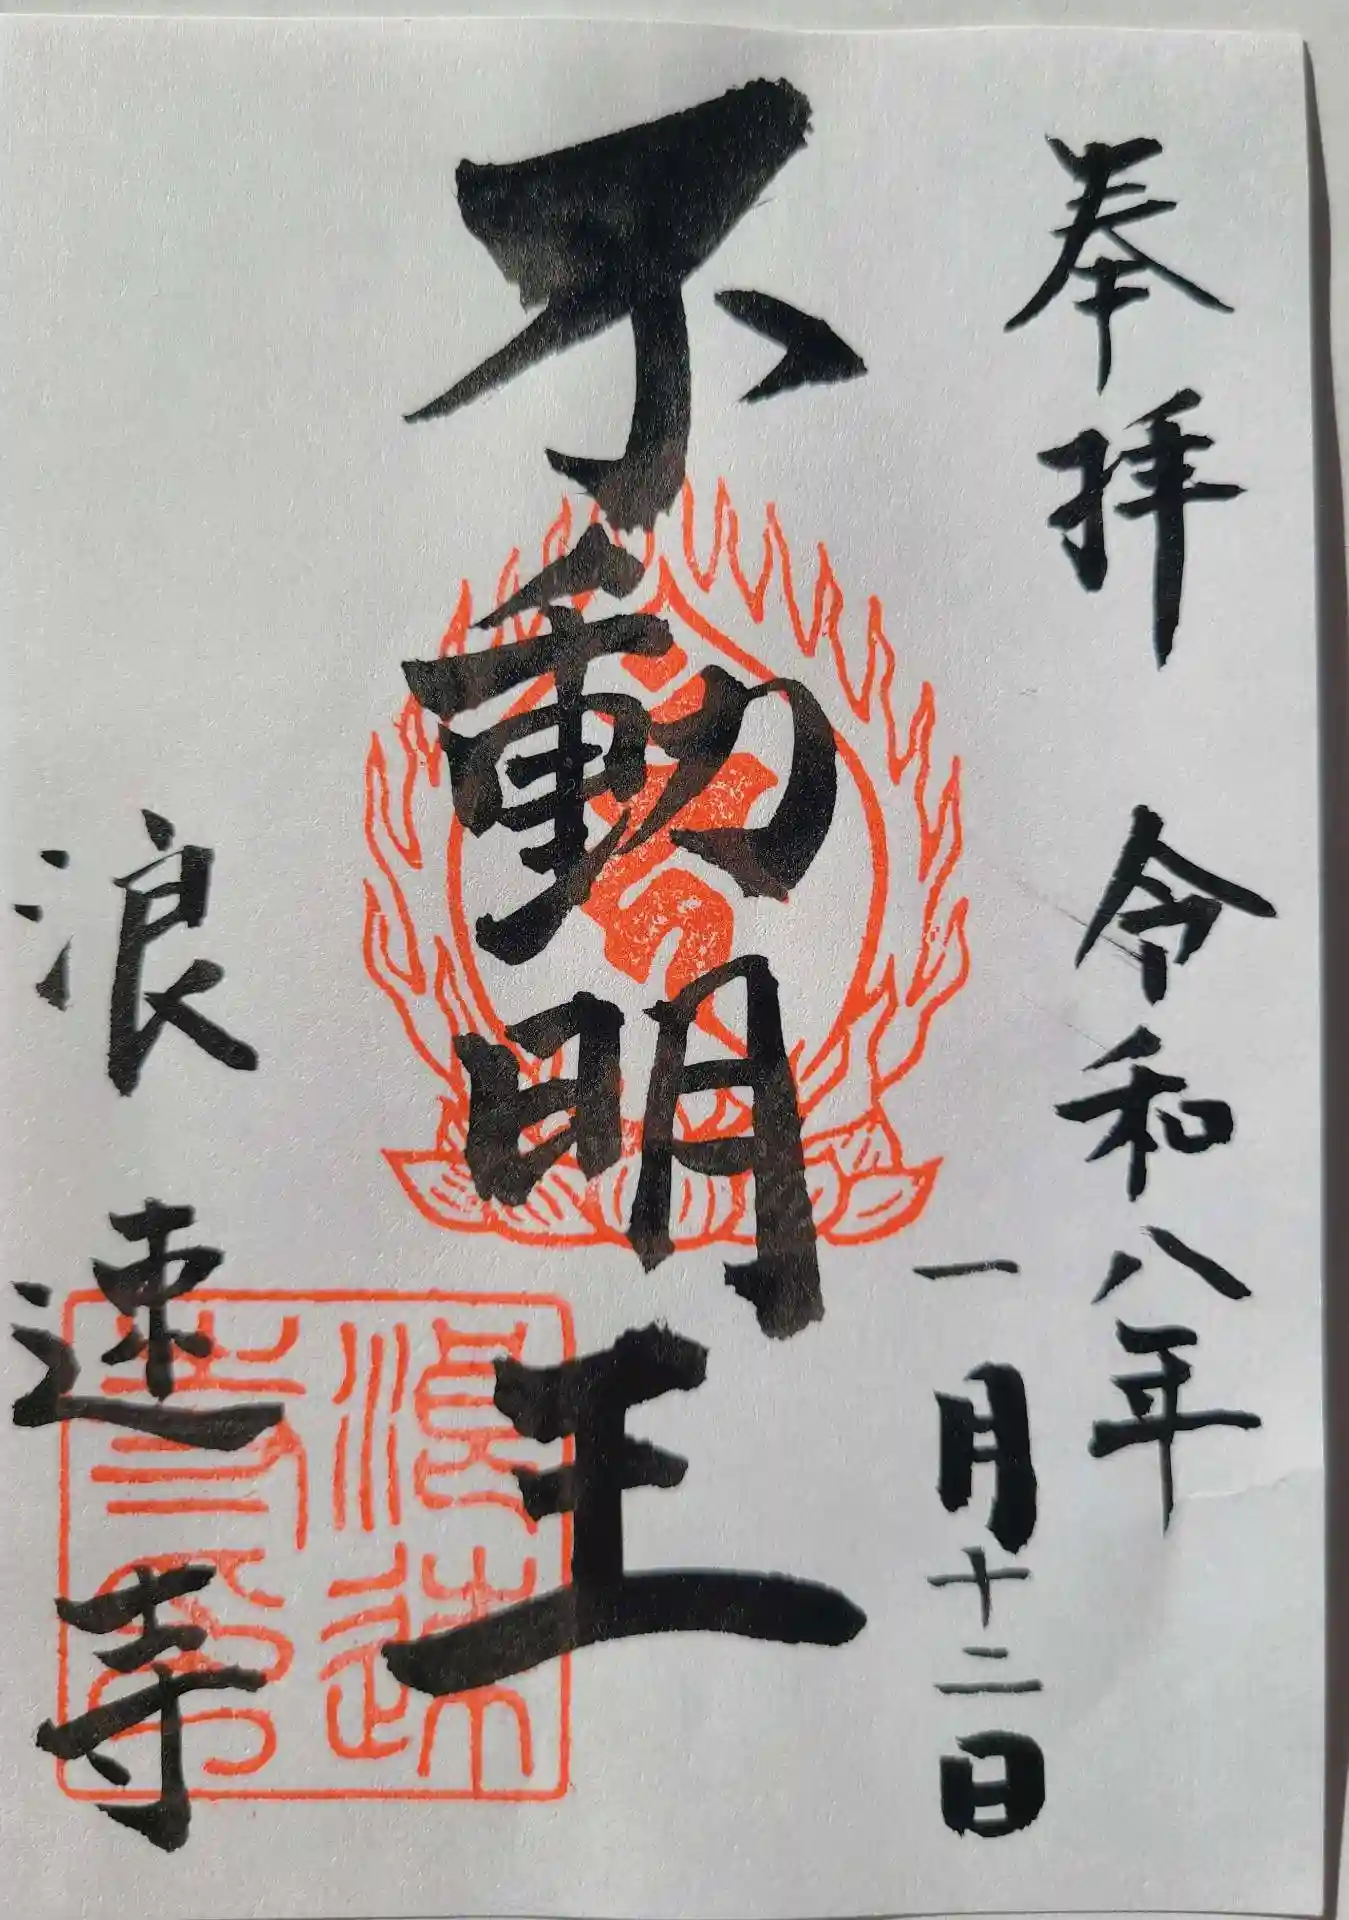 奉拝 令和八年
一月十二日
不動明王
浪速寺